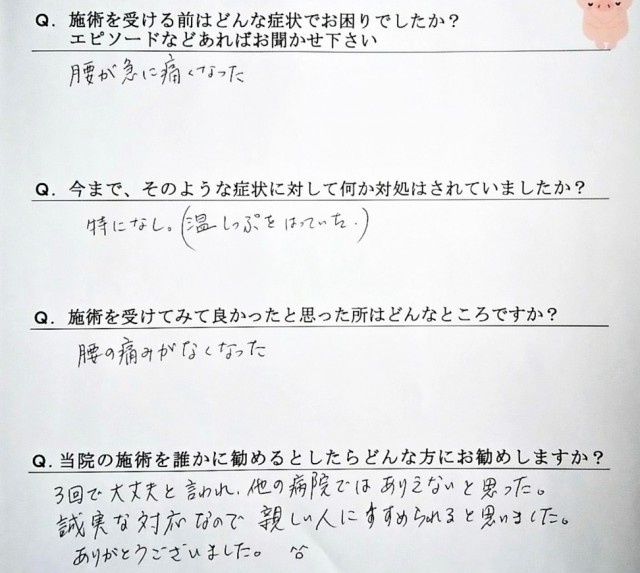 Q. 施術を受ける前はどんな症状でお困りでしたか？
エピソードなどあればお聞かせ下さい
腰が急に痛くなった
Q. 今まで、そのような症状に対して何か対処はされていましたか？
特になし。(温しっぷをはっていた.)
Q. 施術を受けてみて良かったと思った所はどんなところですか？
腰の痛みがなくなった
Q. 当院の施術を誰かに勧めるとしたらどんな方にお勧めしますか？
3回で大丈夫と言われ、他の病院ではありえないと思った。
誠実な対応なので親しい人にすすめられると思いました。
ありがとうございました。